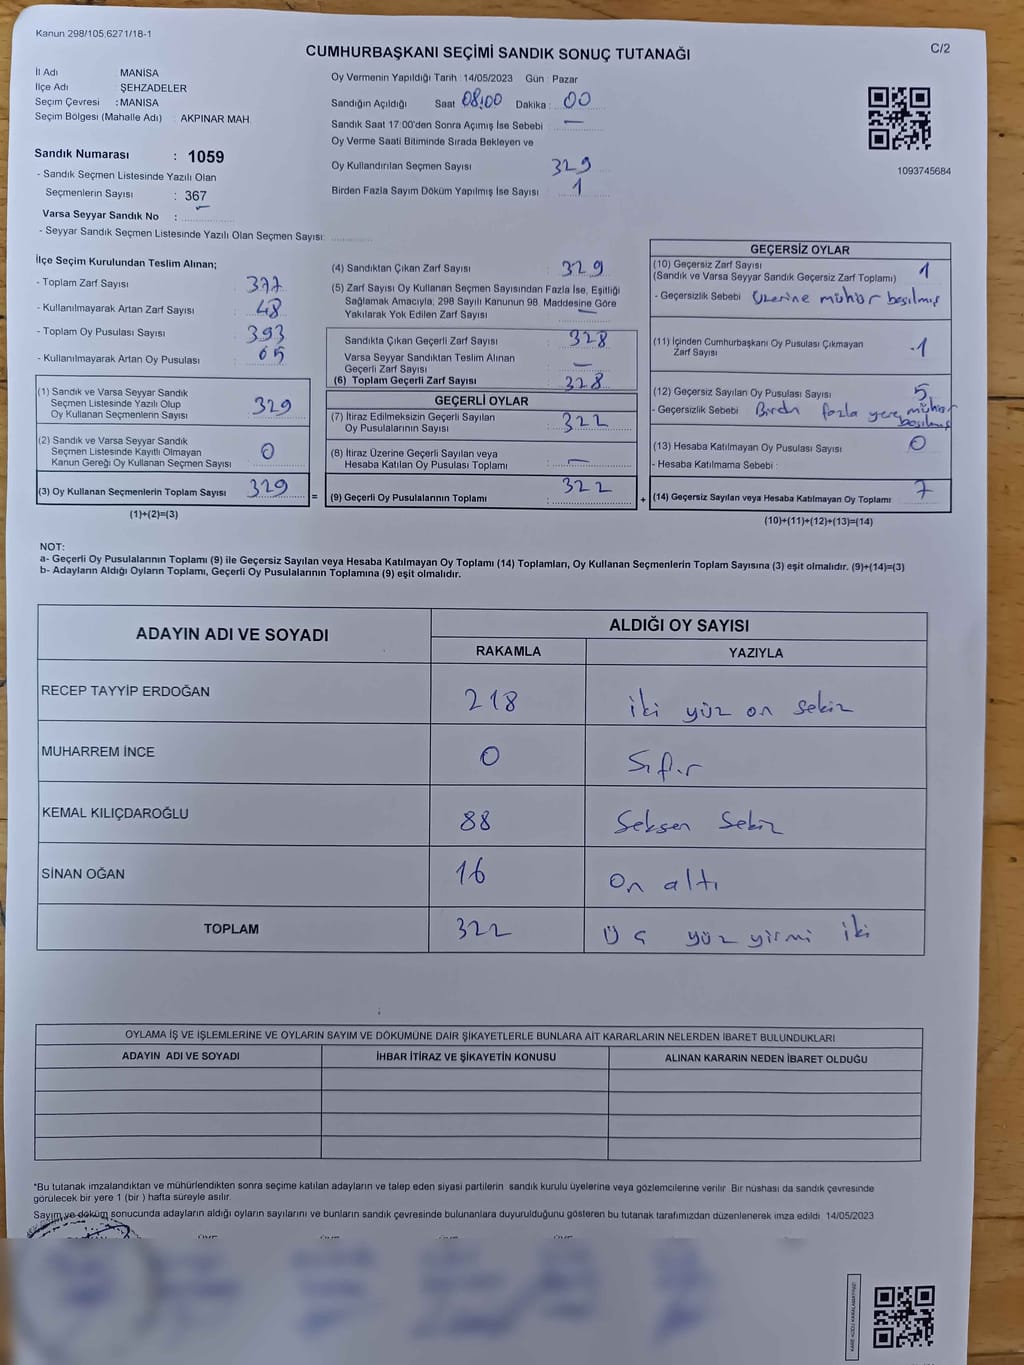 Kanun 298/105,6271/18-1
C/2
CUMHURBAŞKANI SEÇİMİ SANDIK SONUÇ TUTANAĞI
İl Adı : MANİSA
İlçe Adı : ŞEHZADELER
Seçim Çevresi : MANİSA
Seçim Bölgesi (Mahalle Adı) : AKPINAR MAH.
Sandık Numarası : 1059
- Sandık Seçmen Listesinde Yazılı Olan
Seçmenlerin Sayısı : 367
Varsa Seyyar Sandık No :
- Seyyar Sandık Seçmen Listesinde Yazılı Olan Seçmen Sayısı:
Oy Vermenin Yapıldığı Tarih : 14/05/2023 Gün : Pazar
Sandığın Açıldığı Saat 08:00 Dakika : 00
Sandık Saat 17:00'den Sonra Açımış İse Sebebi : —
Oy Verme Saati Bitiminde Sırada Bekleyen ve
Oy Kullandırılan Seçmen Sayısı 329
Birden Fazla Sayım Döküm Yapılmış İse Sayısı : 1
1093745684
İlçe Seçim Kurulundan Teslim Alınan;
- Toplam Zarf Sayısı : 377
- Kullanılmayarak Artan Zarf Sayısı : 48
- Toplam Oy Pusulası Sayısı : 393
- Kullanılmayarak Artan Oy Pusulası : 65
(1) Sandık ve Varsa Seyyar Sandık
Seçmen Listesinde Yazılı Olup
Oy Kullanan Seçmenlerin Sayısı : 329
(2) Sandık ve Varsa Seyyar Sandık
Seçmen Listesinde Kayıtlı Olmayan
Kanun Gereği Oy Kullanan Seçmen Sayısı : 0
(3) Oy Kullanan Seçmenlerin Toplam Sayısı : 329
(1)+(2)=(3)
(4) Sandıktan Çıkan Zarf Sayısı : 329
(5) Zarf Sayısı Oy Kullanan Seçmen Sayısından Fazla İse, Eşitliği
Sağlamak Amacıyla, 298 Sayılı Kanunun 98. Maddesine Göre
Yakılarak Yok Edilen Zarf Sayısı : —
Sandıkta Çıkan Geçerli Zarf Sayısı : 328
Varsa Seyyar Sandıktan Teslim Alınan
Geçerli Zarf Sayısı : —
(6) Toplam Geçerli Zarf Sayısı : 328
GEÇERLİ OYLAR
(7) İtiraz Edilmeksizin Geçerli Sayılan
Oy Pusulalarının Sayısı : 322
(8) İtiraz Üzerine Geçerli Sayılan veya
Hesaba Katılan Oy Pusulası Toplamı : —
= (9) Geçerli Oy Pusulalarının Toplamı : 322
GEÇERSİZ OYLAR
(10) Geçersiz Zarf Sayısı 1
(Sandık ve Varsa Seyyar Sandık Geçersiz Zarf Toplamı) :
- Geçersizlik Sebebi : Üzerine mühür basılmış
(11) İçinden Cumhurbaşkanı Oy Pusulası Çıkmayan
Zarf Sayısı : 1
(12) Geçersiz Sayılan Oy Pusulası Sayısı : 5
- Geçersizlik Sebebi : Birden fazla yere mühür
basılmış
(13) Hesaba Katılmayan Oy Pusulası Sayısı : 0
- Hesaba Katılmama Sebebi :
+ (14) Geçersiz Sayılan veya Hesaba Katılmayan Oy Toplamı : 7
(10)+(11)+(12)+(13)=(14)
NOT:
a- Geçerli Oy Pusulalarının Toplamı (9) ile Geçersiz Sayılan veya Hesaba Katılmayan Oy Toplamı (14) Toplamları, Oy Kullanan Seçmenlerin Toplam Sayısına (3) eşit olmalıdır. (9)+(14)=(3)
b- Adayların Aldığı Oyların Toplamı, Geçerli Oy Pusulalarının Toplamına (9) eşit olmalıdır.
ADAYIN ADI VE SOYADI
ALDIĞI OY SAYISI
RAKAMLA YAZIYLA
RECEP TAYYİP ERDOĞAN 218 iki yüz on sekiz
MUHARREM İNCE 0 Sıfır
KEMAL KILIÇDAROĞLU 88 Seksen Sekiz
SİNAN OĞAN 16 On altı
TOPLAM 322 Üç yüz yirmi iki
OYLAMA İŞ VE İŞLEMLERİNE VE OYLARIN SAYIM VE DÖKÜMÜNE DAİR ŞİKAYETLERLE BUNLARA AİT KARARLARIN NELERDEN İBARET BULUNDUKLARI
ADAYIN ADI VE SOYADI İHBAR İTİRAZ VE ŞİKAYETİN KONUSU ALINAN KARARIN NEDEN İBARET OLDUĞU
*Bu tutanak imzalandıktan ve mühürlendikten sonra seçime katılan adayların ve talep eden siyasi partilerin sandık kurulu üyelerine veya gözlemcilerine verilir. Bir nüshası da sandık çevresinde
görülecek bir yere 1 (bir ) hafta süreyle asılır.
Sayım ve döküm sonucunda adayların aldığı oyların sayılarını ve bunların sandık çevresinde bulunanlara duyurulduğunu gösteren bu tutanak tarafımızdan düzenlenerek imza edildi. 14/05/2023